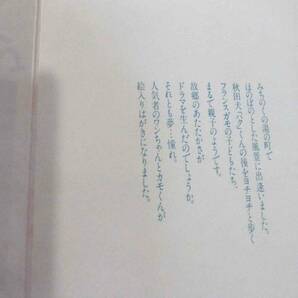 みちのくの湯の町で
ほのぼのとした風景に出逢いました。
秋田犬、バクくんの後をヨチヨチと歩く
フランスガモの子どもたち。
まるで親子のようです。
故郷のあたたかさが
ドラマを生んだのでしょうか。
それとも夢…憧れ。
人気者のワンちゃんとカモくんが
絵入りはがきになりました。